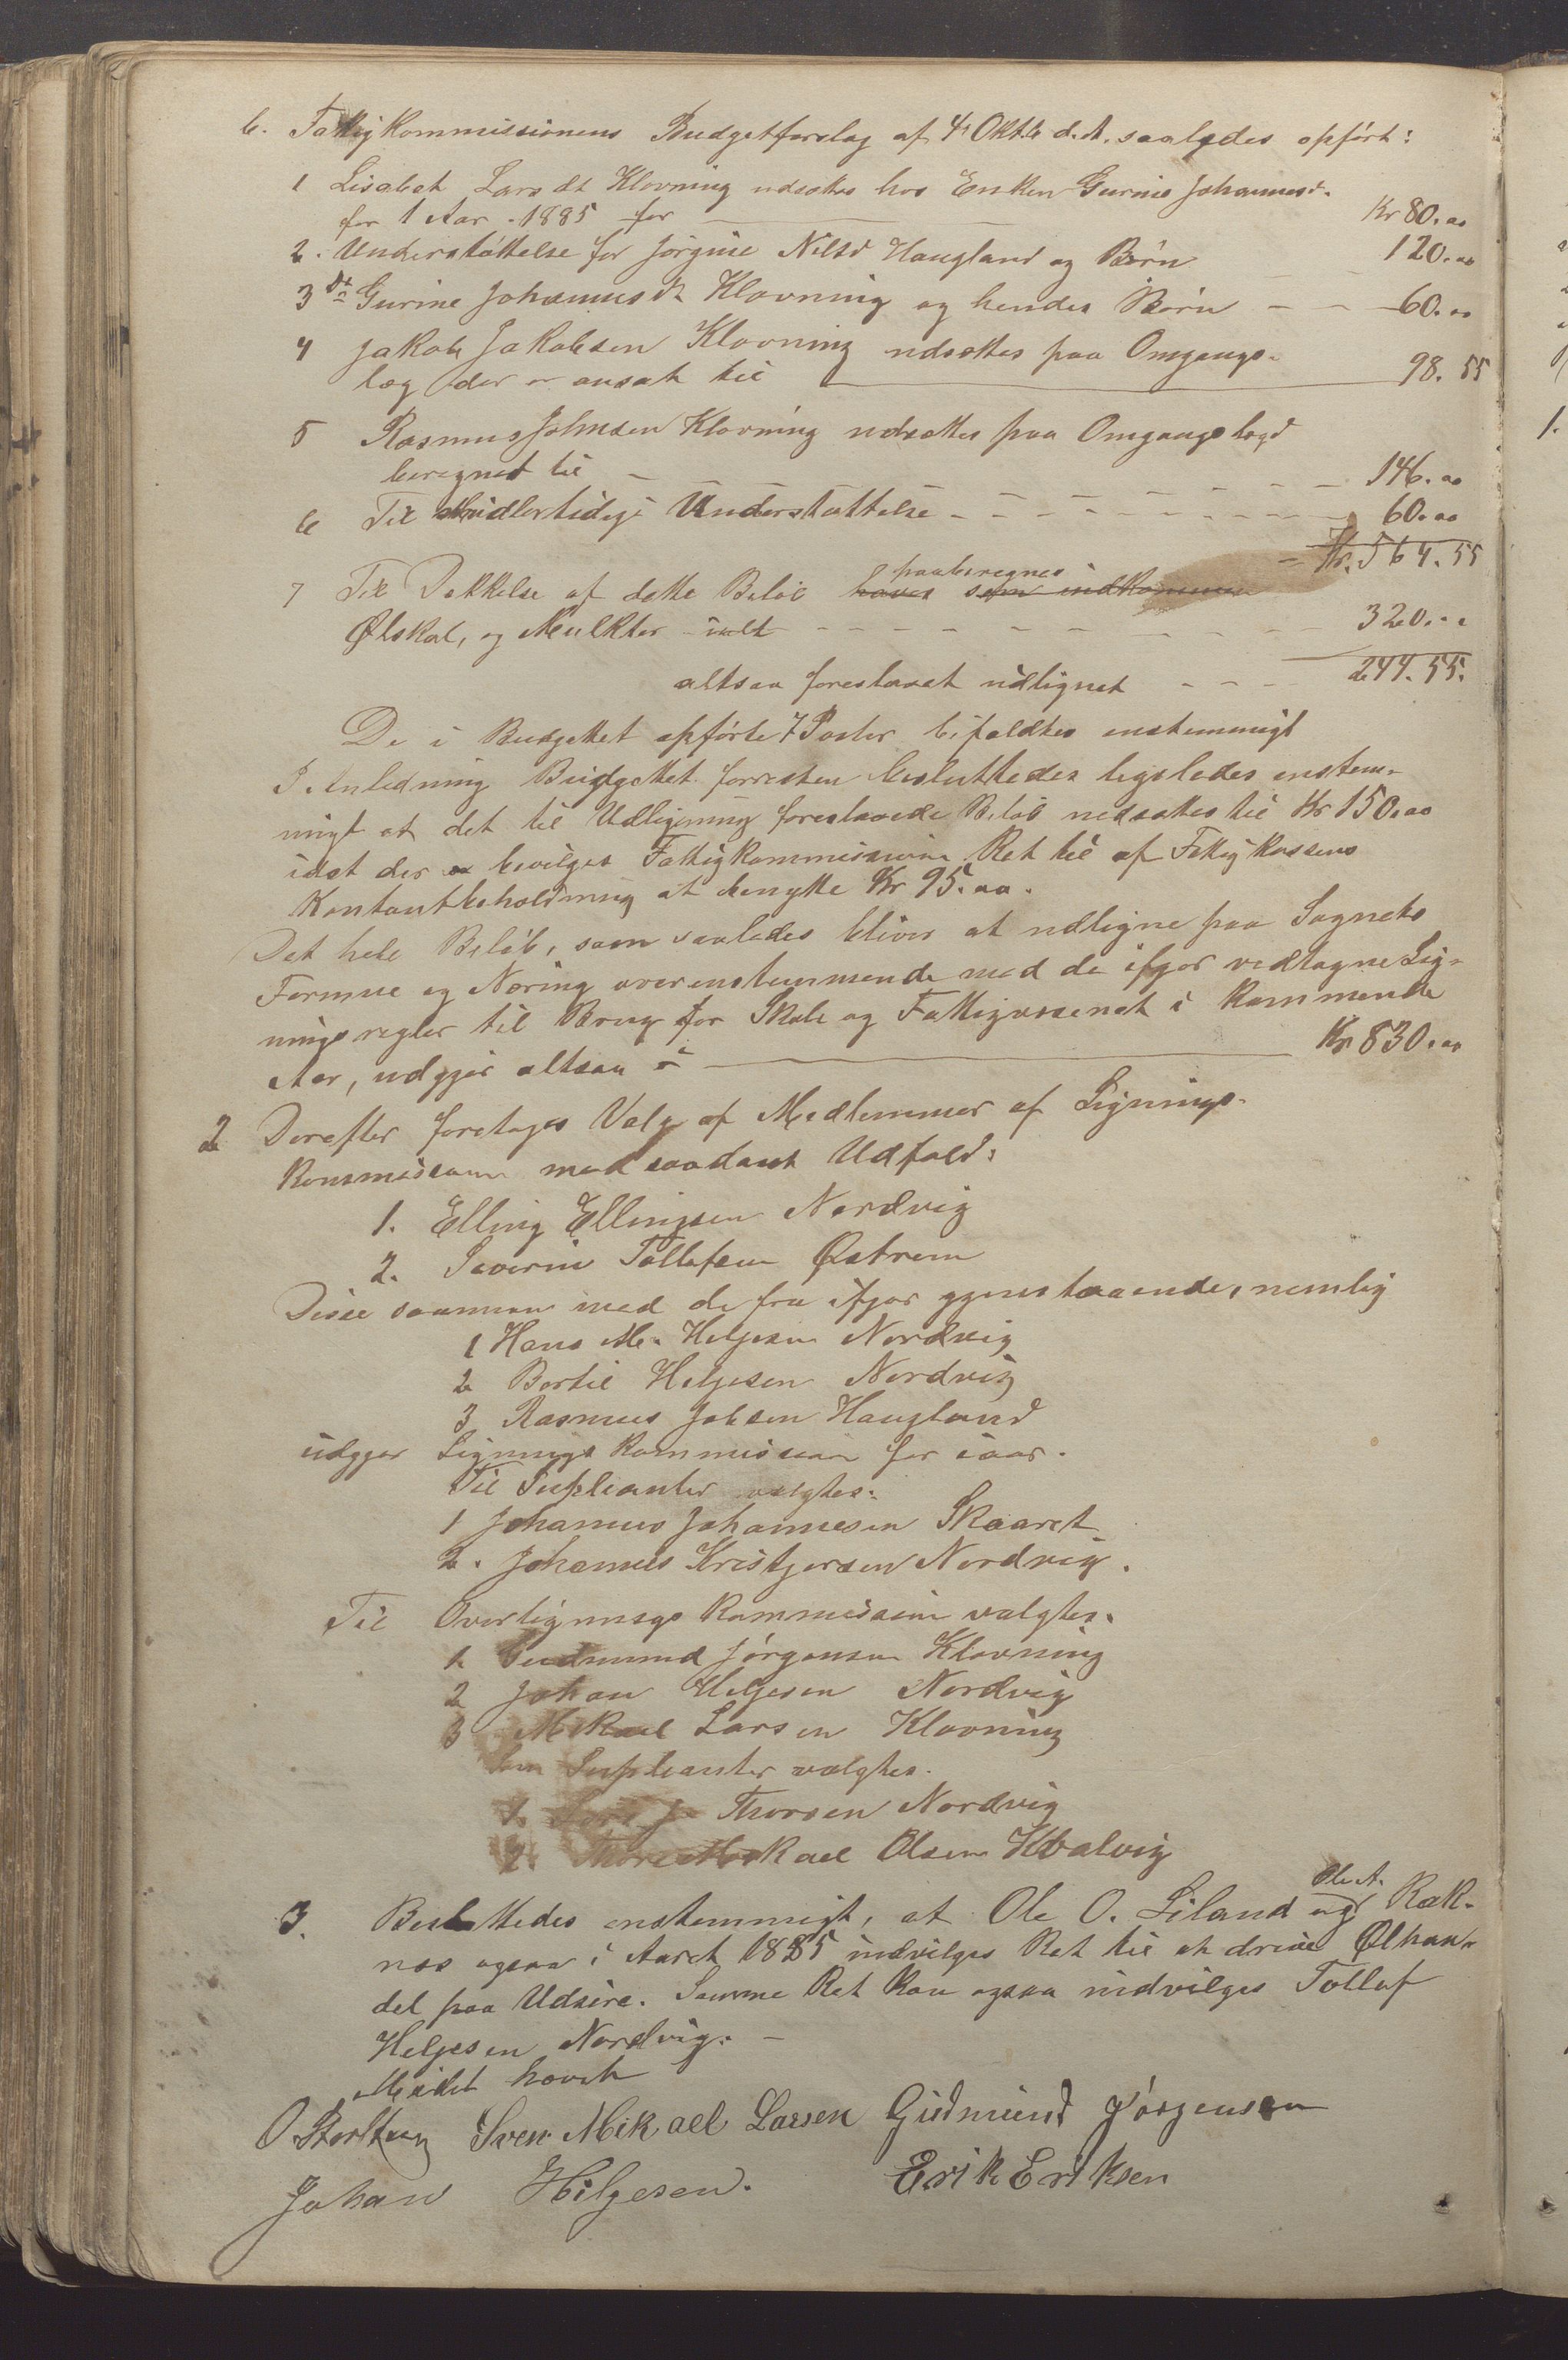 b. Fattigkommissionens Budgetforslag af 4. Oktb d. A. saaledes opført:
1 Lisabet Larsdt Klovning udsættes hos Enken Gurine Johannesd.
for 1 Aar 1885 for Kr 80.00
2. Understøttelse for Jørgine Nilsd Haugland og Børn 120.00
3 do Gurine Johannesdt Klovning og hendes Børn - - 60.00
4 Jakob Jakobsen Klovning udsættes paa Omgangs-
læg der er ansat til 98.55
5 Rasmus Johnsen Klovning udsættes paa Omgangslægd
beregnet til - - - - 146.00
6 Til midlertidige Understøttelse - - - - 60.00
- Kr. 564.55
paaberegnes
7 Til Dækkelse af dette Beløb haves som indkommen
Ølskat, og Mulkter ialt - - - - 320.00
altsaa foreslaaet udlignet - - - 244.55.
De i Budgettet opførte 7 Poster bifaldtes enstemmigt
I Anledning Budgettet forresten besluttedes ligeledes enstem-
migt at det til Udligning foreslaaede Beløb nedsættes til Kr 150.00
idet der bevilges Fattigkommissionen Ret til af Fattigkassens
Kontantbeholdning at benytte Kr 95.00.
Det hele Beløb, som saaledes bliver at udligne paa Sognets
Formue og Næring overenstemmende med de ifjor vedtagne Lig-
ningsregler til Brug for Skole og Fattigvæsenet i kommende
Aar, udgjør altsaa Kr 830.00
2 Derefter foretoges Valg af Medlemmer af Lignings-
kommissionen med saadant Udfald:
1. Elling Ellingsen Nordvig
2. Severin Tollefsen Østrem
Disse sammen med de fra ifjor gjenstaaende, nemlig
1 Hans M. Helgesen Nordvig
2 Bertil Helgesen Nordvig
3 Rasmus Jobsen Haugland
udgjør Ligningskommissionen for iaar.
Til Suplianter valgtes:
1 Johannes Johannesen Skaaret
2. Johannes Kristjersen Nordvig.
Til Overlignings kommissionen valgtes.
1. Gudmund Jørgensen Klovning
2 Johan Helgesen Nordvig
3 Mikael Larsen Klovning
Som Suplianter valgtes.
1. Thorsen Nordvig
2. Mikael Olsen Kvalvig
3. Besluttedes enstemmigt, at Ole O. Liland og Ole A. Røk-
nes ogsaa i Aaret 1885 indvilges Ret til at drive Ølhan-
del paa Udsire. Samme Ret kan ogsaa indvilges Tollef
Helgesen Nordvig. -
Mødet hævet
Sven Mikael Larsen Gudmund Jørgensen
Johan Hilgesen. Erik Eriksen